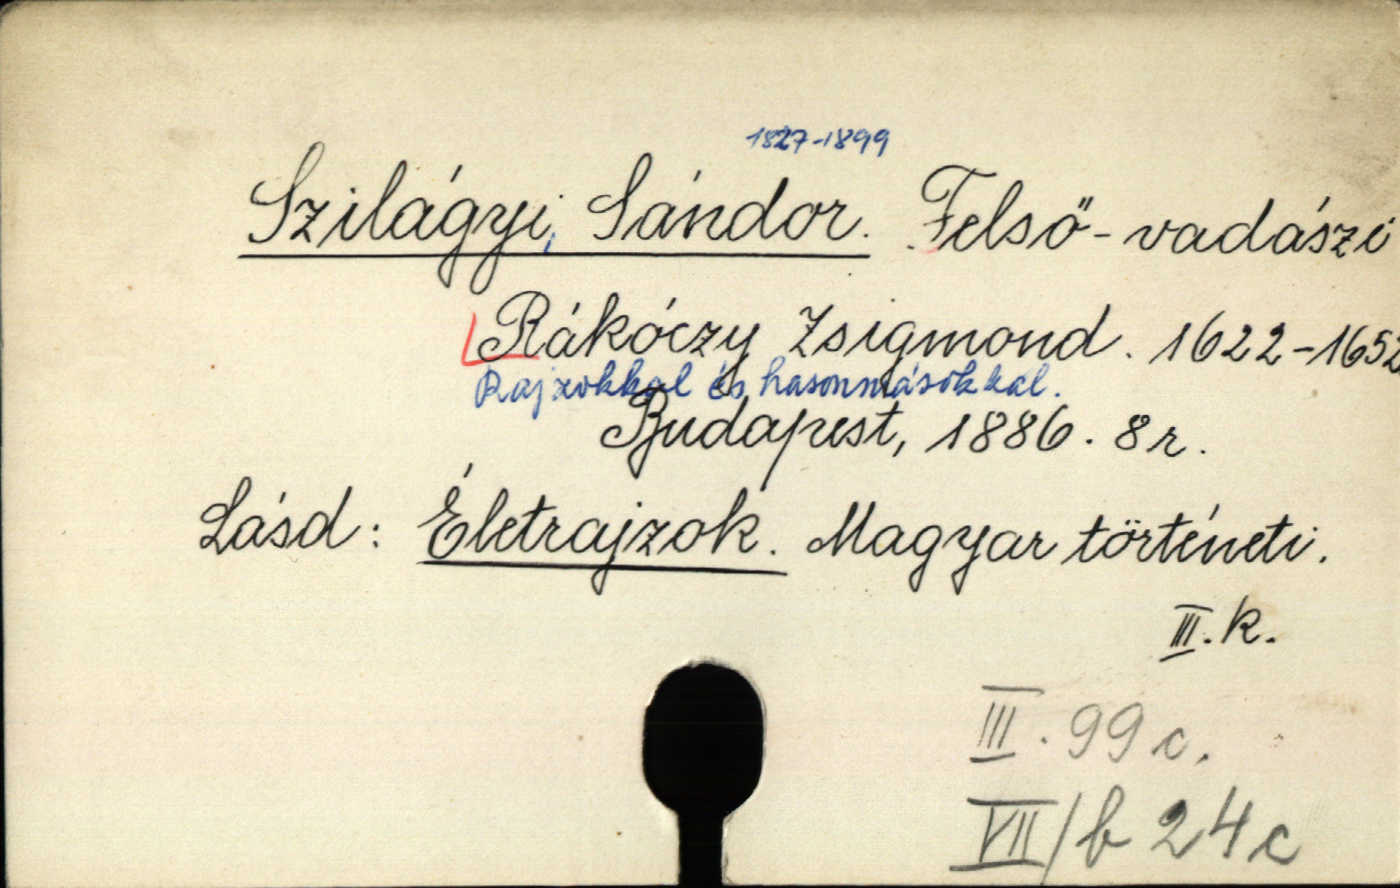 1827-1899
Szilágyi, Sándor. Felső-vadászi
Rákóczy Zsigmond. 1622-1652
Rajzokkal és hasonmásokkal.
Budapest, 1886. 8r.
Lásd: Életrajzok. Magyar történeti.
III. k.
III. 99 c.
VII/b 24 c